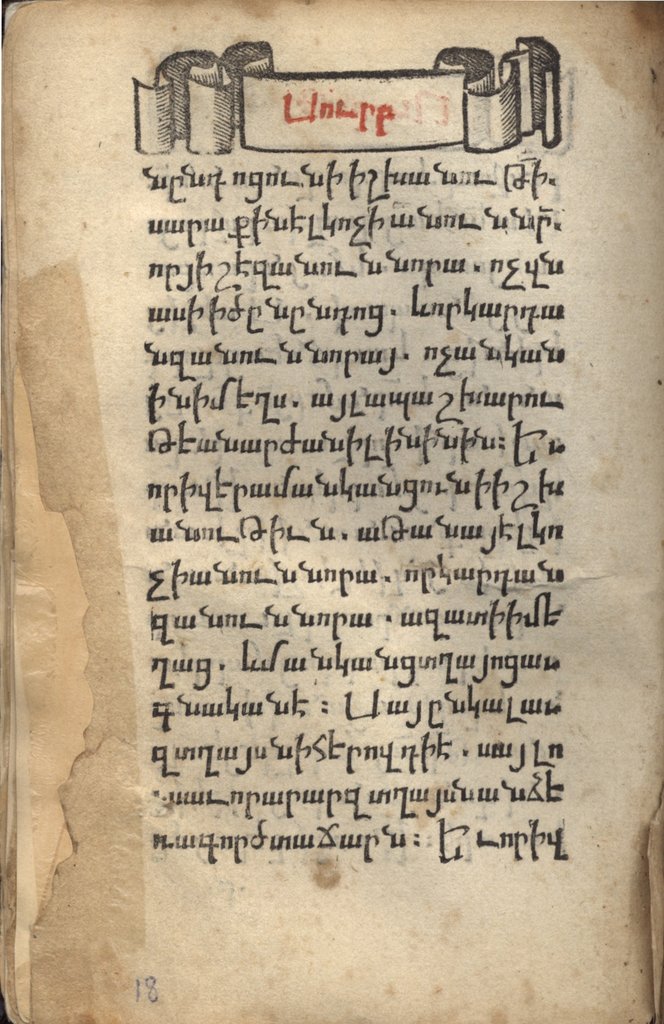 Սուրբ
նընդոցունի իշխանութի՛.
սարաքինէլ կոչի անունն՛ր.
որյիշէզանունն նորա. ոչ վն
ասիիծընընդոց. և որ կարդա
նզանունն նորայ. ոչ անկան
ինիմեղս. այլ ապաշխարու
թեանարժանիլինինին: Եւ
որիվերամանկանցունիիշխ
անութիւն. աթանայէլ կո
չիանունն նորա. որկարդան
զանունն նորա. ազատիիմե
ղաց. և մանկանցտղայոցաւ
գնականէ: Սայընկալաւ
զտղայսնիհերովդիէ. սայլո
սաւորարարզտղայսնանձե
ռագործտաճարն: Եւ որիվ
18